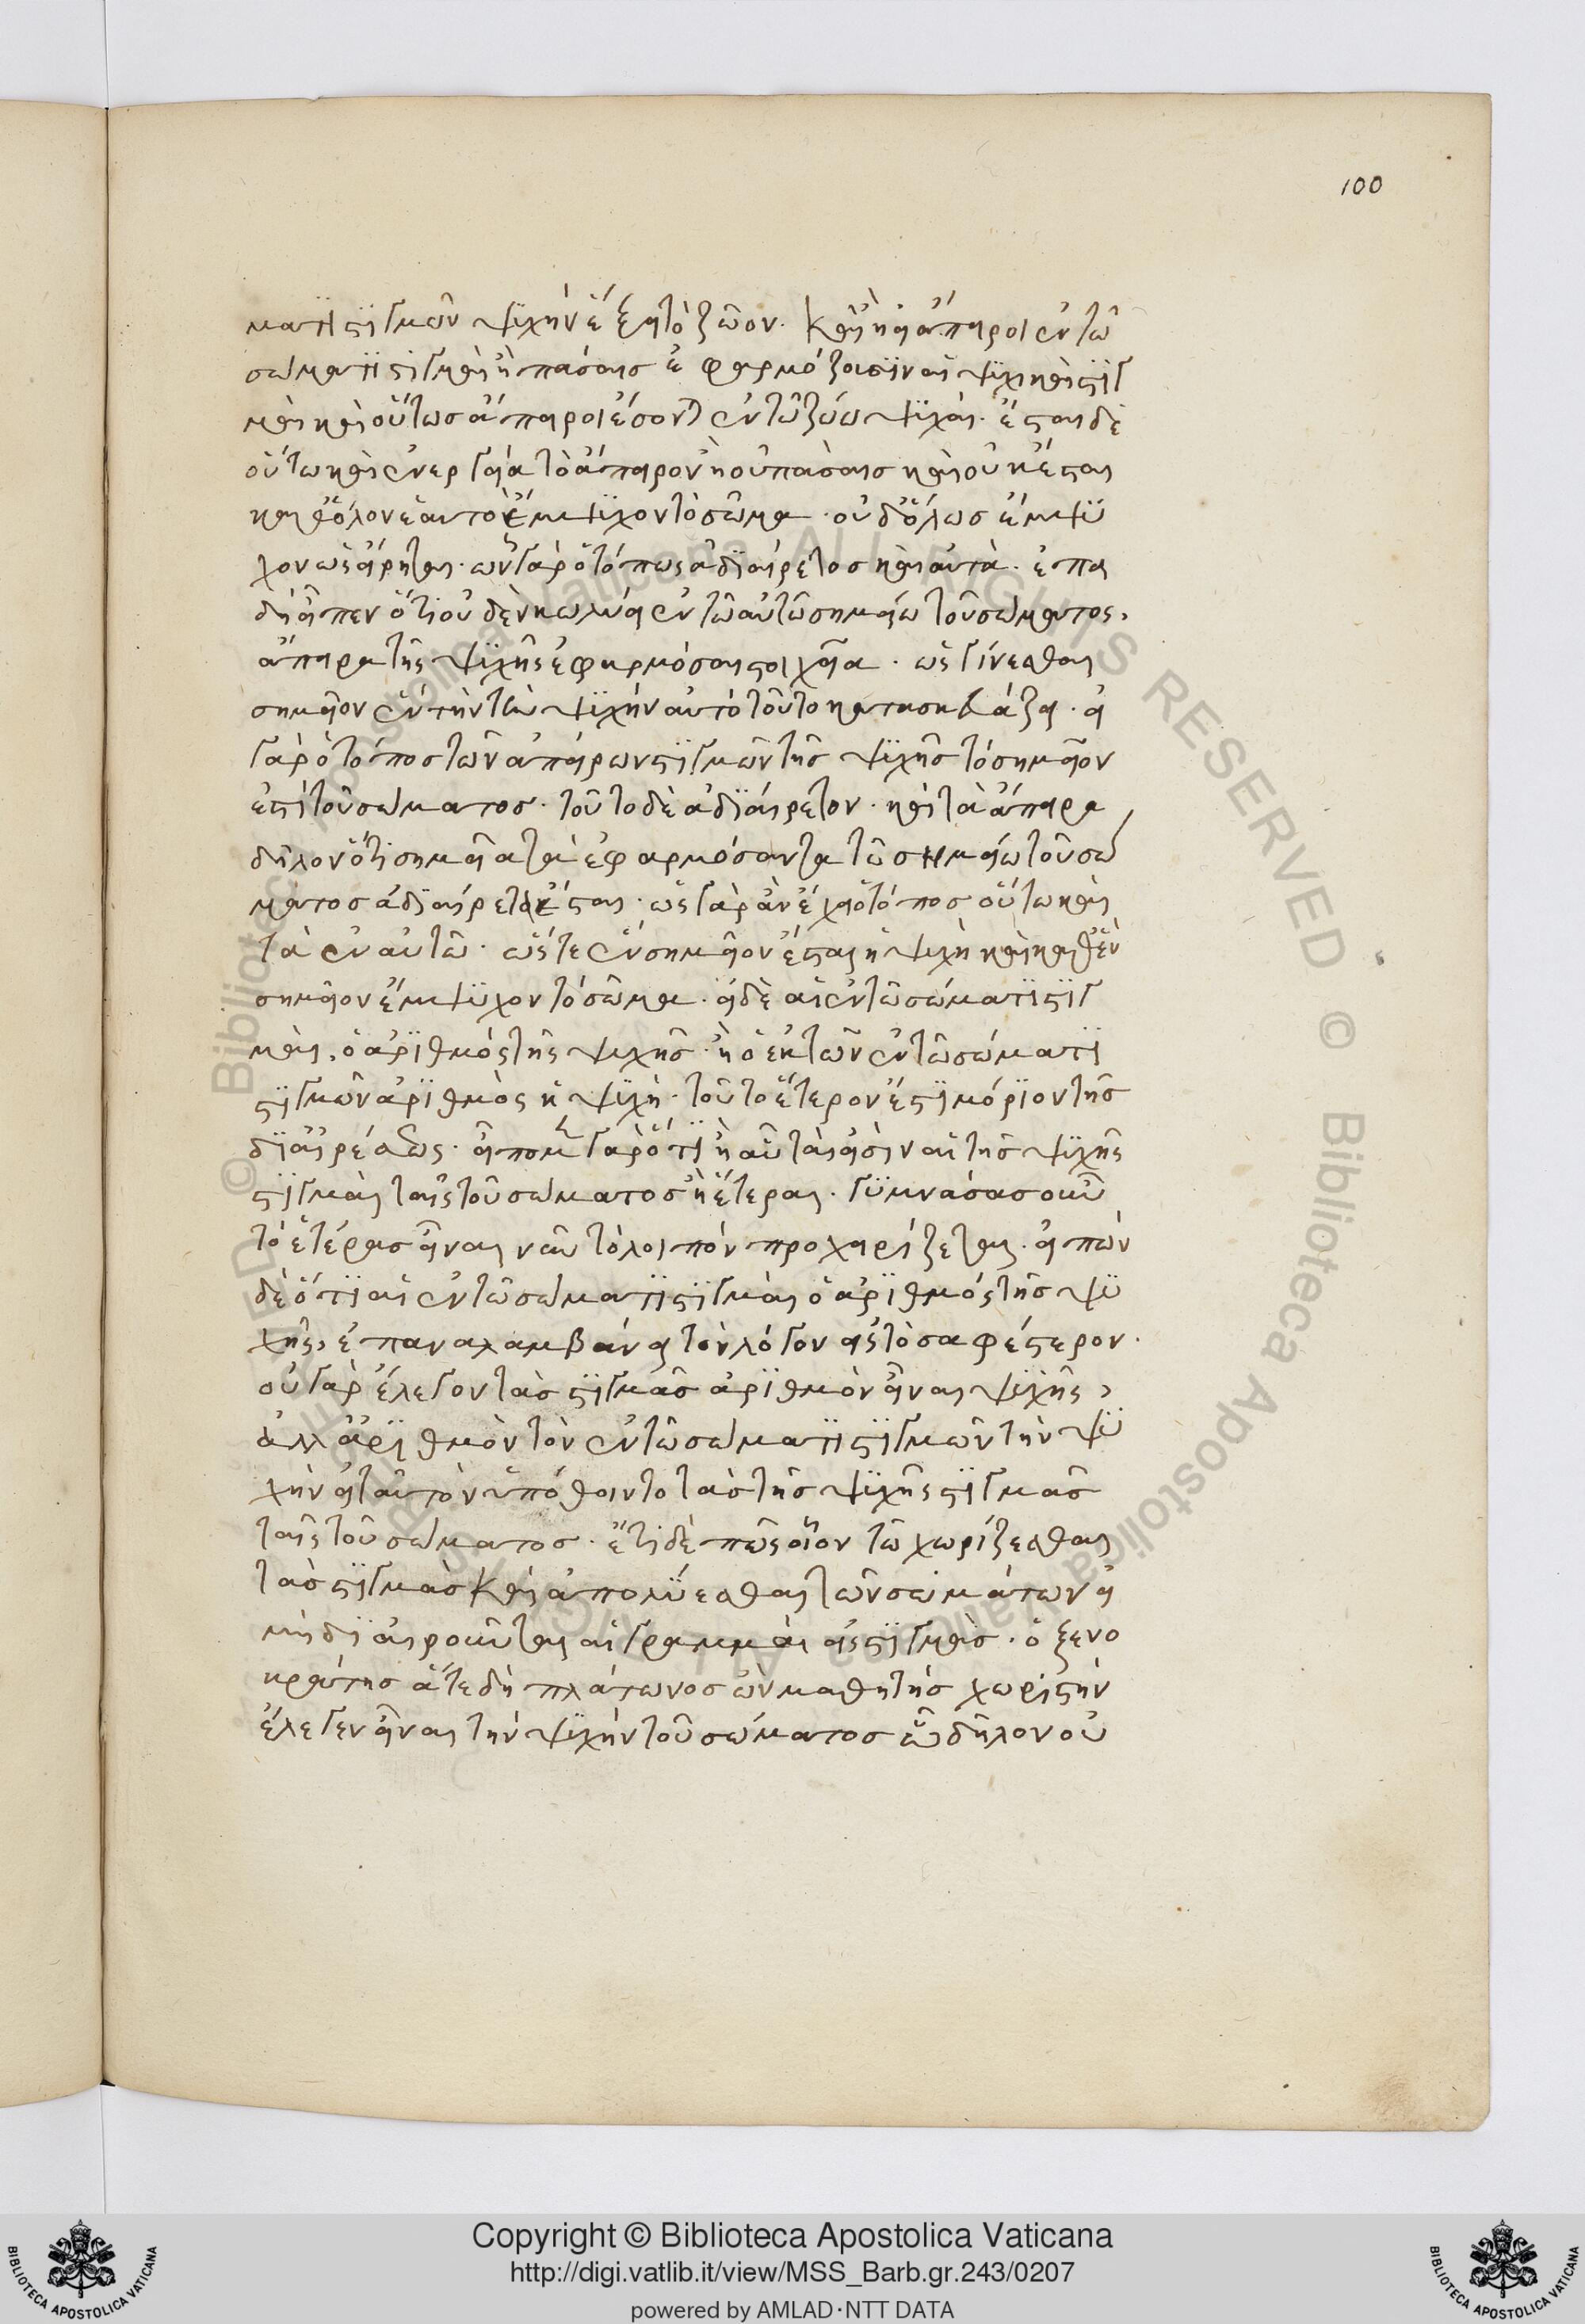 100
ματι στιγμῶν ψυχὴν ἕξει τὸ ζῶον. καὶ ἢ εἰ ἄπειροι ἐν τῶ
σώματι στιγμαὶ ἢ πάσαις ἐφαρμόζουσιν αἱ ψυχικαὶ στιγ
μαὶ καὶ οὕτως ἄπειροι ἔσονται ἐν τῶ ζώω ψυχαί. ἔσται δὲ
οὕτω καὶ ἐνεργεία τὸ ἄπειρον ἢ οὐ πάσαις καὶ οὐκ ἔσται
καθόλον ἑαυτὸ ἔμψυχον τὸ σῶμα. οὐδ' ὅλως ἔμψυ
χον ὡς εἴρηται. ὧν γὰρ ὁ τόπος ἀδιαίρετος καὶ αὐτά. ἐπει
δὴ εἶπεν ὅτι οὐδὲν κωλύει ἐν τῶ αὐτῶ σημείω τοῦ σώματος,
ἄπειρα τῆς ψυχῆς ἐφαρμόσαι στοιχεῖα. ὡς γίνεσθαι
σημεῖον ἓν τὴν ψυχὴν αὐτὸ τοῦτο κατασκευάζει. εἰ
γὰρ ὁ τόπος τῶν ἀπείρων στιγμῶν τῆς ψυχῆς τὸ σημεῖον
ἐστὶ τοῦ σώματος. τοῦτο δὲ ἀδιαίρετον. καὶ τὰ ἄπειρα
δῆλον ὅτι σημεῖα τὰ ἐφαρμόσαντα τῶ σημείω τοῦ σώ
ματος ἀδιαίρετα ἔσται. ὡς γὰρ ἂν ἔχει ὁ τόπος οὕτω καὶ
τὰ ἐν αὐτῶ. ὥστε ἓν σημεῖον ἔσται ἡ ψυχὴ καὶ καθ' ἓν
σημεῖον ἔμψυχον τὸ σῶμα. εἰ δὲ αἱ ἐν τῶ σώματι στιγ
μαὶ, ὁ ἀριθμὸς τῆς ψυχῆς. ἢ ὁ ἐκ τῶν ἐν τῶ σώματι
στιγμῶν ἀριθμὸς ἡ ψυχή. τοῦτο ἕτερον ἐστὶ μόριον τῆς
διαιρέσεως. εἴπομεν γὰρ ὅτι ἢ αὗται εἰσὶν αἱ τῆς ψυχῆς
στιγμαὶ ταῖς τοῦ σώματος ἢ ἕτεραι. γυμνάσας οὖν
τὸ ἑτέρας εἶναι νῦν τὸ λοιπὸν προχειρίζεται. εἰπὼν
δὲ ὅτι αἱ ἐν τῶ σώματι στιγμαὶ ὁ ἀριθμὸς τῆς ψυ
χῆς, ἐπαναλαμβάνει τὸν λόγον εἰς τὸ σαφέστερον.
οὐ γὰρ ἔλεγον τὰς στιγμὰς ἀριθμὸν εἶναι ψυχῆς,
ἀλλ' ἀριθμὸν τὸν ἐν τῶ σώματι στιγμῶν τὴν ψυ
χὴν εἰ ταὐτὸν ὑπόθοιντο τὰς τῆς ψυχῆς στιγμὰς
ταῖς τοῦ σώματος. ἔτι δὲ πῶς οἷον τῶ χωρίζεσθαι
τὰς στιγμὰς καὶ ἀπολύεσθαι τῶν σωμάτων εἰ
μὴ διαιροῦνται αἱ γραμμαὶ εἰς στιγμὰς. ὁ ξενο
κράτης ἅτε δὴ πλάτωνος ὢν μαθητὴς χωριστὴν
ἔλεγεν εἶναι τὴν ψυχὴν τοῦ σώματος ὡς δῆλον οὐ
Copyright © Biblioteca Apostolica Vaticana
http://digi.vatlib.it/view/MSS_Barb.gr.243/0207
powered by AMLAD·NTT DATA